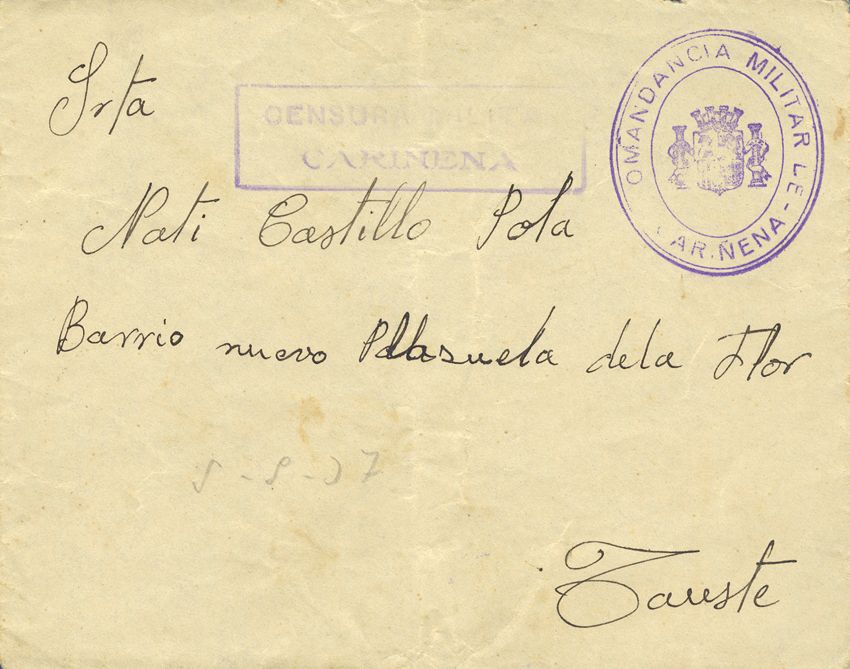 Srta
CENSURA MILITAR
CARIÑENA
COMANDANCIA MILITAR DE
CARIÑENA
Nati Castillo Pola
Barrio nuevo Plazuela dela Flor
Tauste